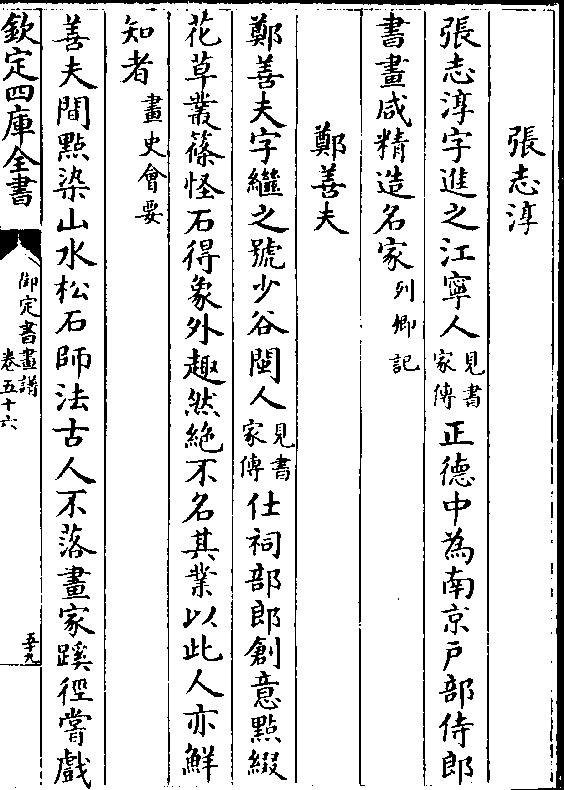 張志淳
張志淳字進之江寧人見書家傳正德中為南京戶部侍郎
書畫咸精造名家列卿記
鄭善夫
鄭善夫字繼之號少谷閩人見書家傳仕祠部郎創意點綴
花草叢篠怪石得象外趣然絶不名其業以此人亦鮮
知者畫史會要
善夫間點染山水松石師法古人不落畫家蹊徑嘗戲
欽定四庫全書
御定書畫譜
卷五十六
五十九